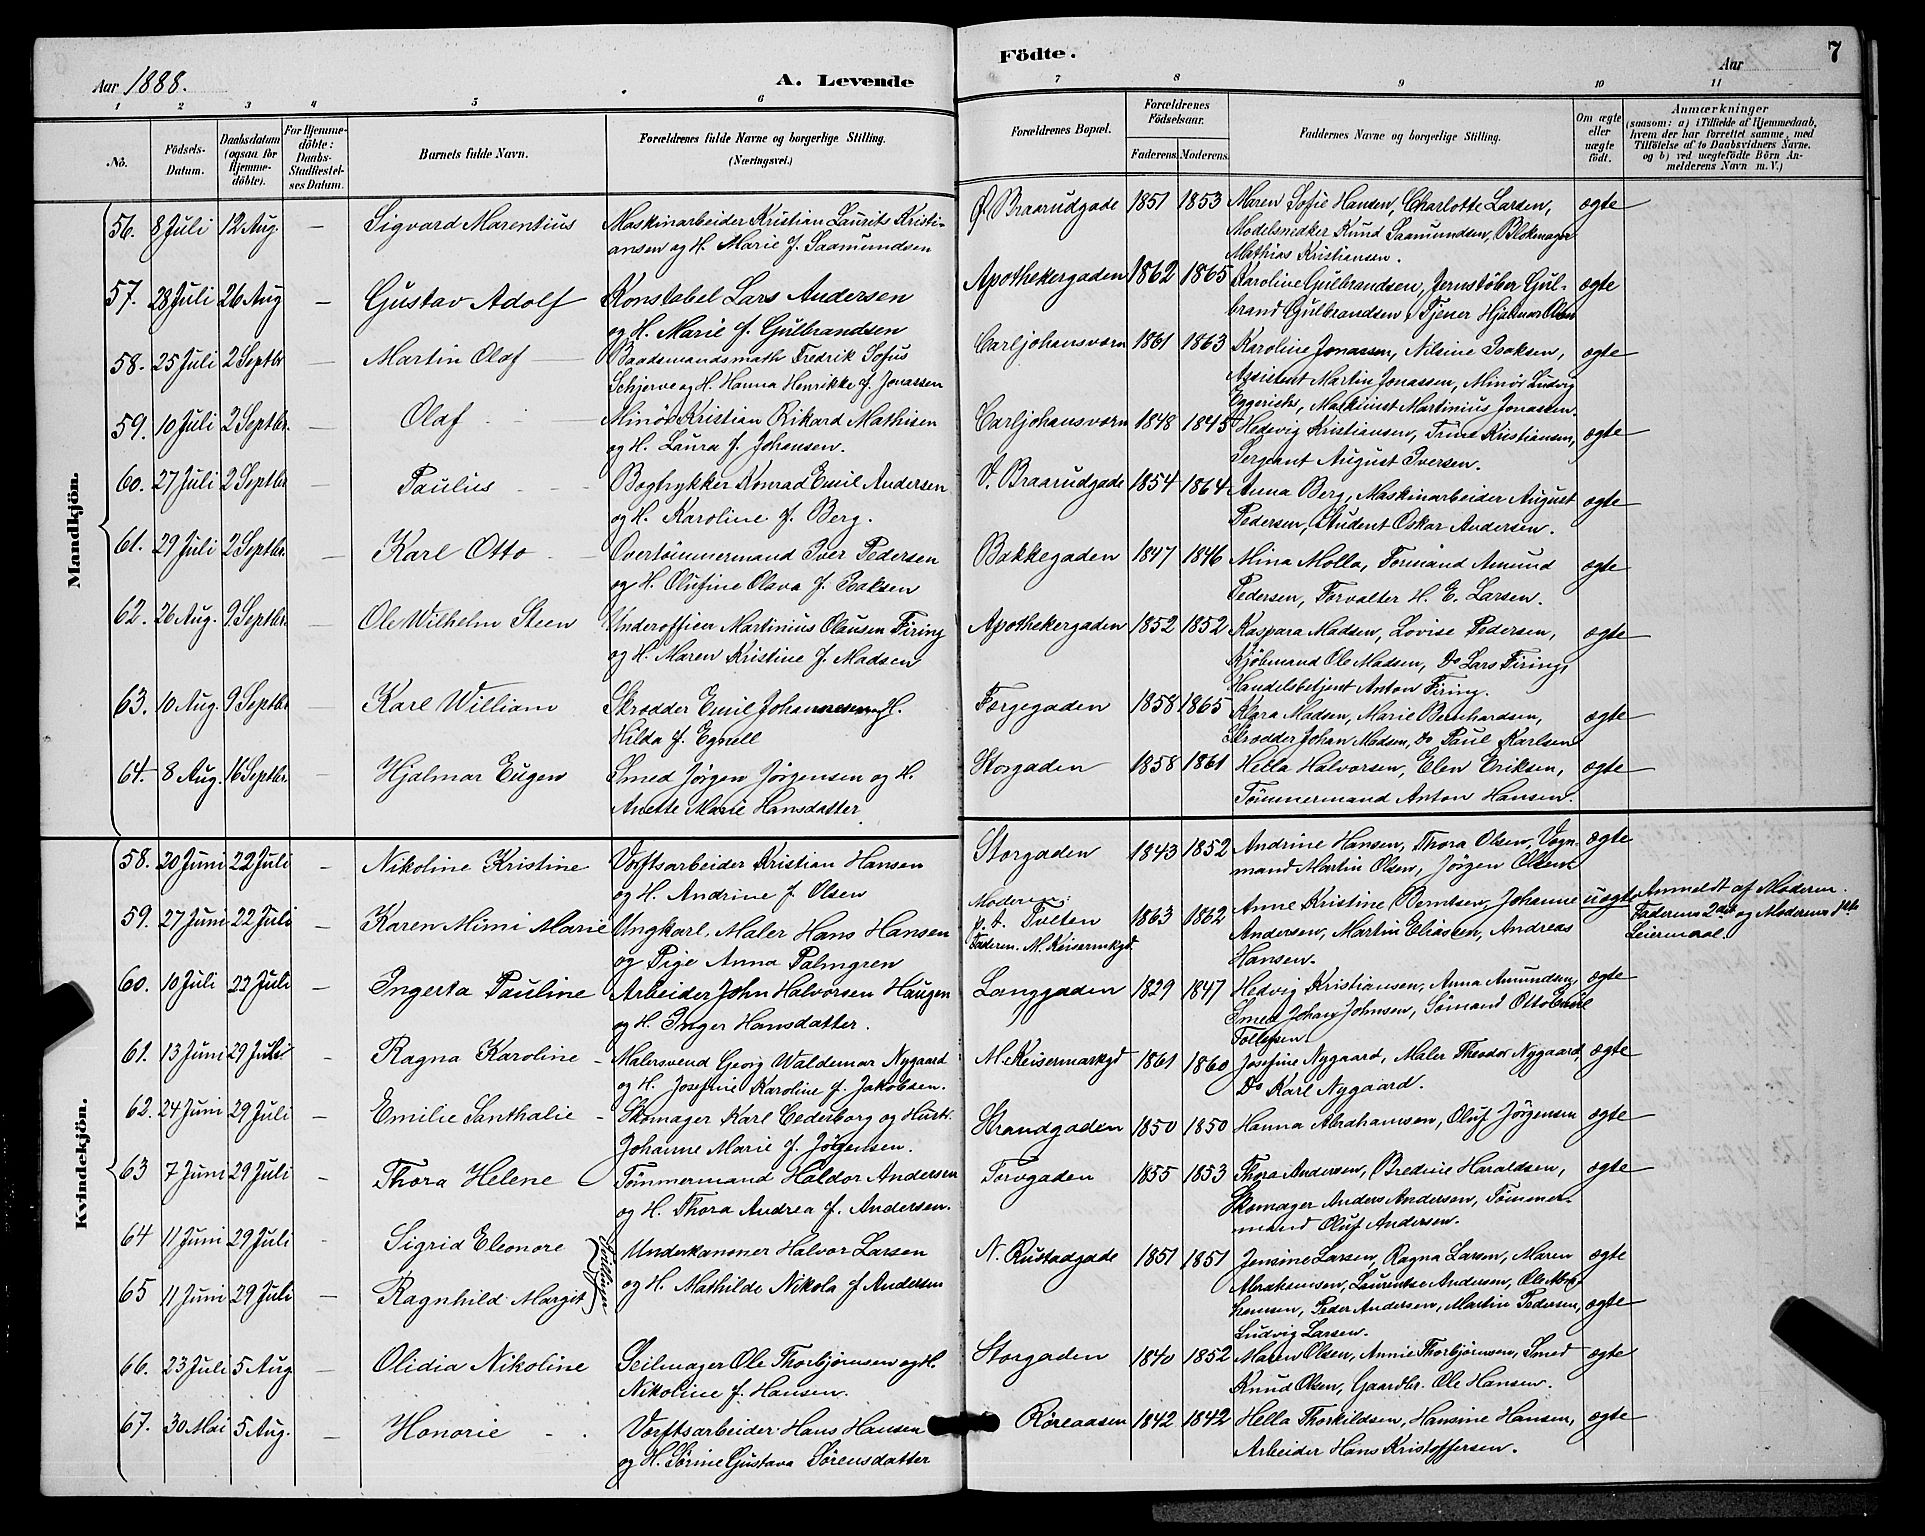 Aar 1888.
A. Levende
Födte.
Aar
7
1 2 3 4 5 6
7 8 9 10 11
No.
Födsels-
Datum.
Daabsdatum
(ogsaa for
Hjemme-
döbte).
For Hjemme-
döbte:
Daabs-
Stadfæstel-
ses Datum.
Barnets fulde Navn.
Forældrenes fulde Navne og borgerlige Stilling.
(Næringsvei.)
Forældrenes Bopæl.
Forældrenes
Födselsaar.
Faderens. Moderens.
Faddernes Navne og borgerlige Stilling.
Om ægte
eller
uægte
födt.
Anmærkninger
(saasom: a) i Tilfælde af Hjemmedaab,
hvem der har forrettet samme, med
Tilföielse af to Daabsvidners Navne.
og b) ved uægtefödte Börn An-
melderens Navn m. V.)
Mandkjön.
56. 8 Juli 12 Aug. — Sigvard Marentius Maskinarbeider Kristian Laurits Kristi-
ansen og H. Marie f. Saamundsen
Ø. Braarudgade 1851 1853 Maren Sofie Hansen, Charlotte Larsen, ægte
Modelsnæker Knud Saamundsen, Blokmager
Mathias Kristiansen.
57. 28 Juli 26 Aug — Gustav Adolf Konstabel Lars Andersen
og H. Marie f. Gulbrandsen
Apothekergaden 1862 1865 Karoline Gulbrandsen, Jernstøber Gul- ægte
brand Gulbrandsen, Tjener Hjalmar Olsen
58. 25 Juli 2 Septbr — Martin Olaf Baadsmandsmath Fredrik Sofus
Schjerve og H. Hanna Henrikke f. Jonassen
Carljohansværn 1861 1863 Karoline Jonassen, Nilsine Isaksen, ægte
Assistent Martin Jonassen, Minør Ludvig
Maskinist Martinius Jonassen.
59. 10 Juli 2 Septbr. — Olaf Minør Kristian Rikard Mathisen
og H. Laura f. Johansen.
Carljohansværn 1848 1845 Hedevig Kristiansen, Trine Kristiansen, ægte
Sergeant August Iversen.
60. 27 Juli 2 Septbr — Paulus Bogtrykker Konrad Emil Andersen
og H. Karoline f. Berg.
V. Braarudgade 1854 1864 Anna Berg, Maskinarbeider August ægte
Pedersen, Student Oskar Andersen.
61. 29 Juli 2 Septbr. — Karl Otto Overtømmermand Iver Pedersen
og H. Olufine Olava f. Isaksen
Bakkegaden 1847 1846 Mina Molla, Formand Amund ægte
Pedersen, Forvalter H. E. Larsen.
62. 26 Aug. 9 Septbr. — Ole Wilhelm Steen Underofficer Martinius Olausen Firing
og H. Maren Kristine f. Madsen
Apothekergaden 1852 1852 Kaspara Madsen, Lovise Pedersen, ægte
Kjøbmand Ole Madsen, Do Lars Firing,
Handelsbetjent Anton Firing.
63. 10 Aug. 9 Septbr — Karl William Skrædder Emil Johannesen og H.
Hilda f. Egnell
Færgegaden 1858 1865 Klara Madsen, Marie Bernhardsen, ægte
Skrædder Johan Madsen, Do Paul Karlsen
64. 8 Aug. 16 Septbr. — Hjalmar Eugen Smed Jørgen Jørgensen og H.
Anette Marie Hansdatter
Storgaden 1858 1861 Hella Halvorsen, Elen Eriksen, ægte
Tømmermand Anton Hansen.
Kvindekjön.
58. 20 Juni 22 Juli — Nikoline Kristine Værftsarbeider Kristian Hansen
og H. Andrine f. Olsen
Storgaden 1843 1852 Andrine Hansen, Thora Olsen, Vogn- ægte
mand Martin Olsen, Jørgen Olsen
59. 27 Juni 22 Juli — Karen Mimi Marie Ungkarl, Maler Hans Hansen
og Pige Anna Palmgren
Moderen:
p. t. Tveten
Faderen. M. Keisermkgd.
1863 1862 Anne Kristine Berntsen, Johanne uægte Anmeldt af Moderen.
Andersen, Martin Eliasen, Andreas Faderens 2det og Moderens 1ste
Hansen. Leiermaal.
60. 10 Juli 22 Juli — Ingerta Pauline Arbeider John Halvorsen Haugen
og H. Inger Hansdatter.
Langgaden 1829 1847 Hedvig Kristiansen, Anna Amundsen, ægte
Smed Johan Johnsen, Sømand Otto Emil
Tollefsen
61. 13 Juni 29 Juli — Ragna Karoline Malersvend Georg Waldemar Nygaard
og H. Josefine Karoline f. Jakobsen.
M. Keisermarkgd 1861 1860 Josefine Nygaard, Maler Theodor Nygaard, ægte
Do Karl Nygaard.
62. 24 Juni 29 Juli — Emilie Santhalie Skomager Karl Cederborg og Hust.
Johanne Marie f. Jørgensen.
Strandgaden 1850 1850 Hanna Abrahamsen, Oluf Jørgensen ægte
63 7 Juni 29 Juli — Thora Helene Tømmermand Haldor Andersen
og H. Thora Andrea f. Andersen.
Torvgaden 1855 1853 Thora Andersen, Bredine Haraldsen, ægte
Skomager Anders Andersen, Tømmer-
mand Oluf Andersen.
64 11 Juni 29 Juli - Sigrid Eleonore Tvillinger Underkanoner Halvor Larsen
65 11 Juni 29 Juli — Ragnhild Margit og H. Mathilde Nikola f Andersen
N. Rustadgade 1851 1851 Jensine Larsen, Ragna Larsen, Maren ægte
Abrahamsen, Laurentse Andersen, Ole Abra-
hamsen, Peder Andersen, Martin Pedersen, ægte
Ludvig Larsen.
66. 23 Juli 5 Aug — Olidia Nikoline Seilmager Ole Thorbjørnsen og H.
Nikoline f. Hansen.
Storgaden 1840 1852 Maren Olsen, Annie Thorbjørnsen, Smed ægte
Knud Olsen, Gaardbr. Ole Hansen.
67. 30 Mai 5 Aug. — Honorie Værftsarbeider Hans Hansen
og H. Sørine Gustava Sørensdatter
Røreaasen 1842 1842 Hella Thorkildsen, Hansine Hansen, ægte
Arbeider Hans Kristoffersen.